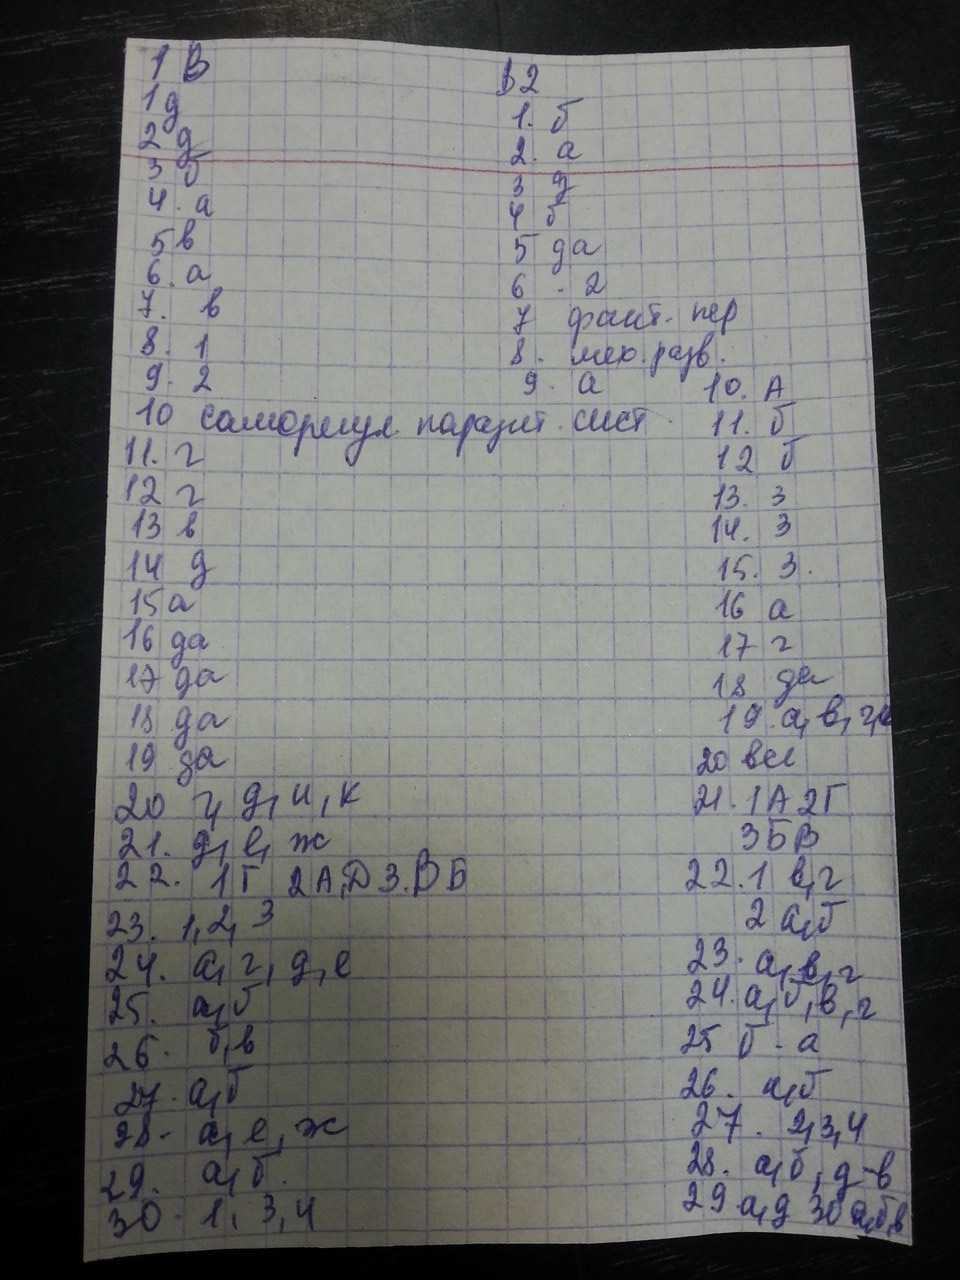 1 В
1 д
2 д
3 б
4. а
5 в
6. а
7. в
8. 1
9. 2
10 саморегул. паразит. сист.
11. г
12 г
13 в
14 д
15 а
16 да
17 да
18 да
19 да
20 г, д, и, к
21. д, е, ж
22. 1Г 2А,D 3.ВБ
23. 1, 2, 3
24. а, г, д, е
25. а,б
26. б,в
27. а,б
28. а, е, ж
29. а,б.
30. 1, 3, 4
В2
1. б
2. а
3 д
4 б
5 да
6 . 2
7 факт. пер
8. мех. разв.
9. а
10. А
11. б
12 б
13. 3
14. 3
15. 3.
16 а
17 г
18 да
19. а, в, г,
20 все
21. 1А 2Г
3БВ
22. 1 в,г
2 а,б
23. а, в, г
24. а, б, в, г
25 б - а
26. а,б
27. 2,3,4
28. а,б, д-в
29 а,д 30 а,б,в